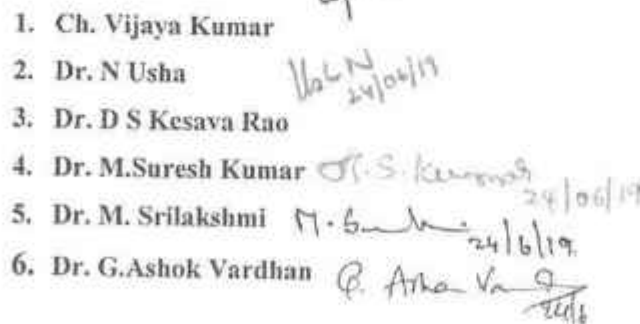 1. Ch. Vijaya Kumar
2. Dr. N Usha 24/06/19
3. Dr. D S Kesava Rao
4. Dr. M.Suresh Kumar M.S. Kumar 24/06/19
5. Dr. M. Srilakshmi 24/6/19
6. Dr. G.Ashok Vardhan 24/6